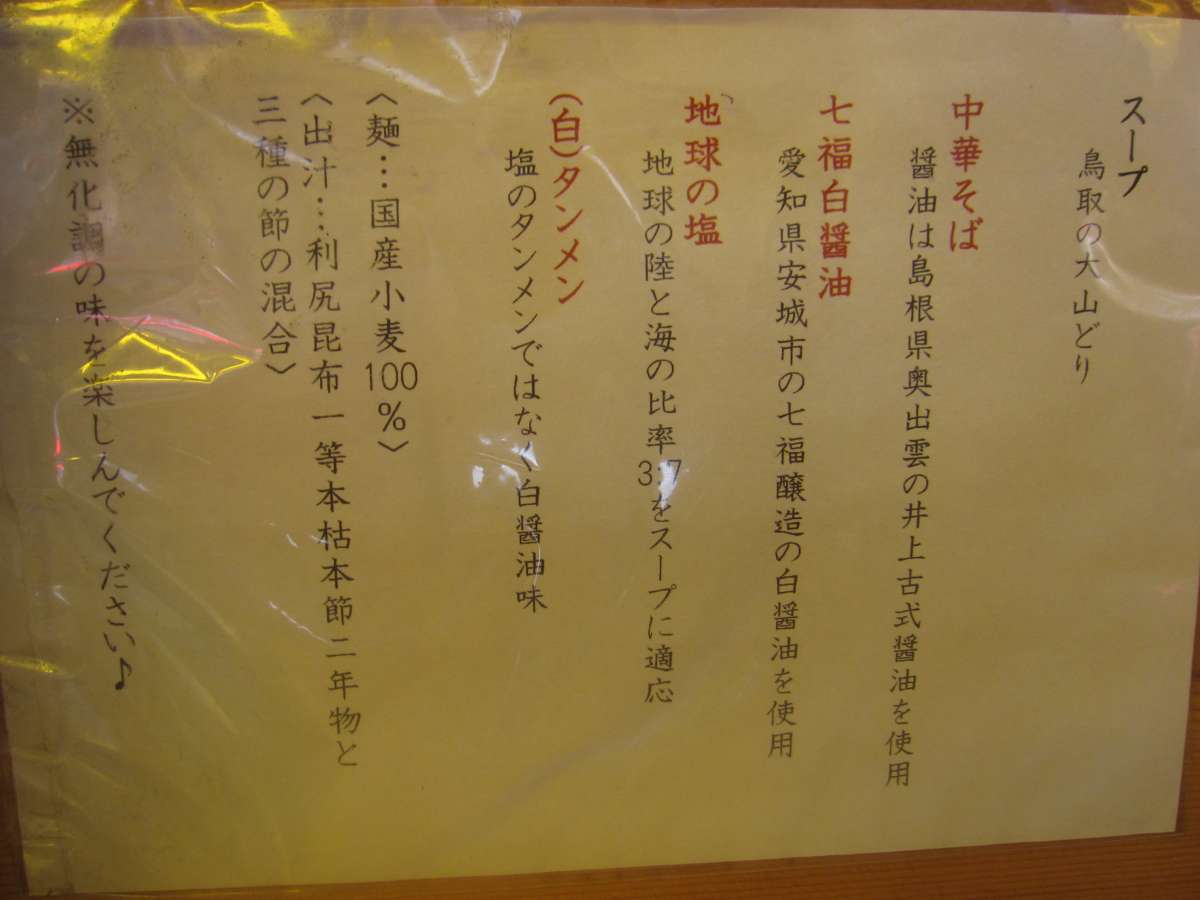 スープ
鳥取の大山どり
中華そば
醤油は島根県奥出雲の井上古式醤油を使用
七福白醤油
愛知県安城市の七福醸造の白醤油を使用
地球の塩
地球の陸と海の比率3:7をスープに適応
(白)タンメン
塩のタンメンではなく白醤油味
〈麺…国産小麦100%〉
〈出汁…利尻昆布一等本枯本節二年物と
三種の節の混合〉
※無化調の味を楽しんでください♪